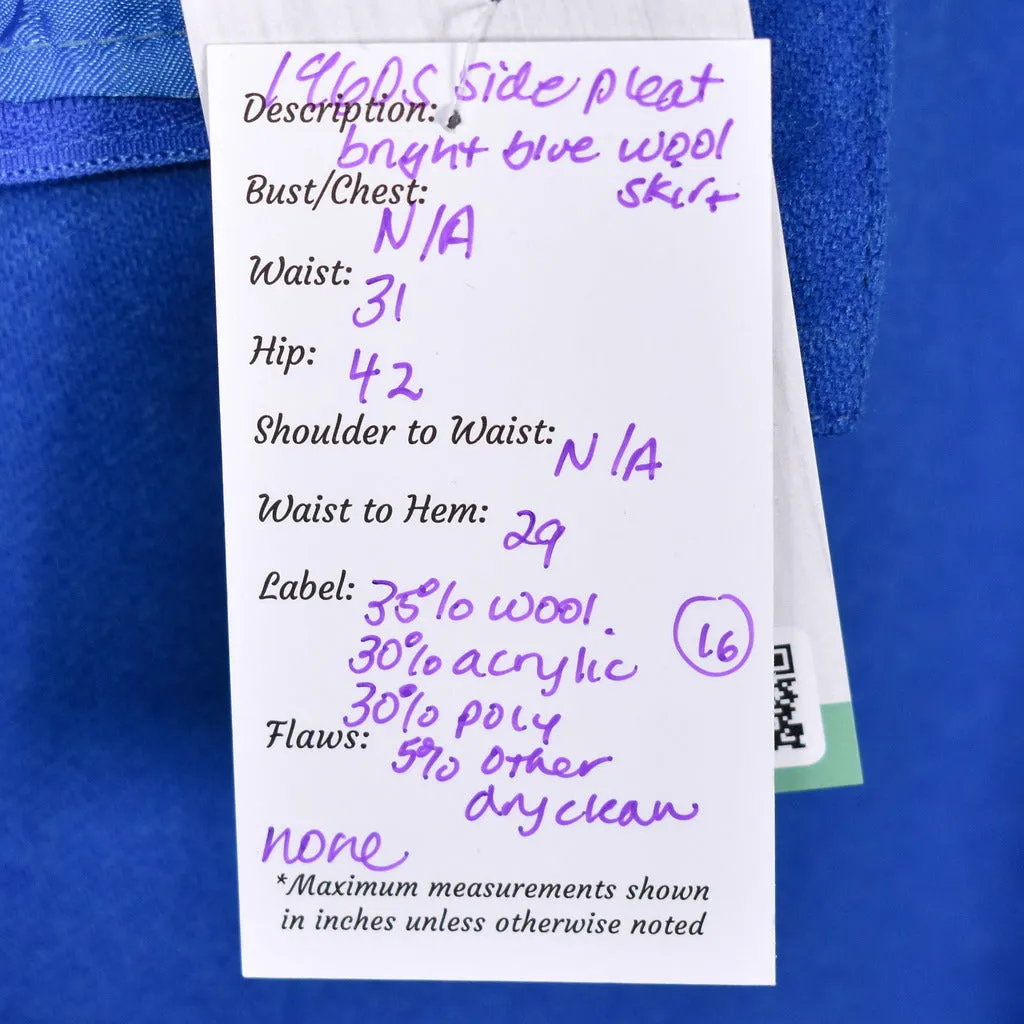 1960s side pleat
Description:
bright blue wool
skirt
Bust/Chest:
N/A
Waist:
31
Hip:
42
Shoulder to Waist:
N/A
Waist to Hem:
29
Label: 35% wool.
16
30% acrylic
30% poly
Flaws:
5% other
dry clean
none
*Maximum measurements shown
in inches unless otherwise noted